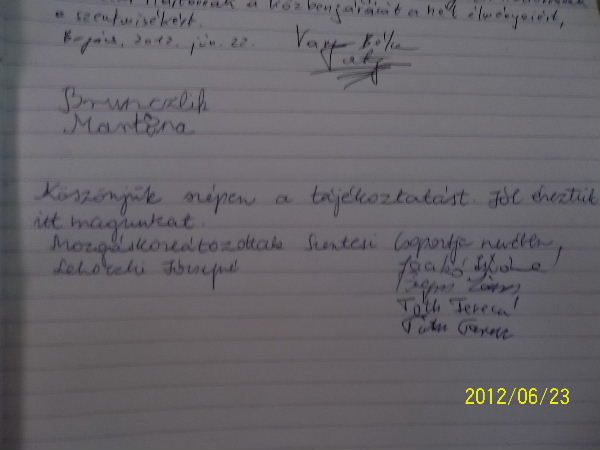 a közbenjárását a hét élményeiért,
a szentmisékért.
2012. jún. 22. Varga Béla
Brunczlik
Martina
Köszönjük szépen a tájékoztatást. Jól éreztük
itt magunkat.
Mozgáskorlátozottak Szentesi Csoportja nevében,
Lehoczki Józsefné
Szabó
Tóth Ferencné
Tóth Ferenc
2012/06/23